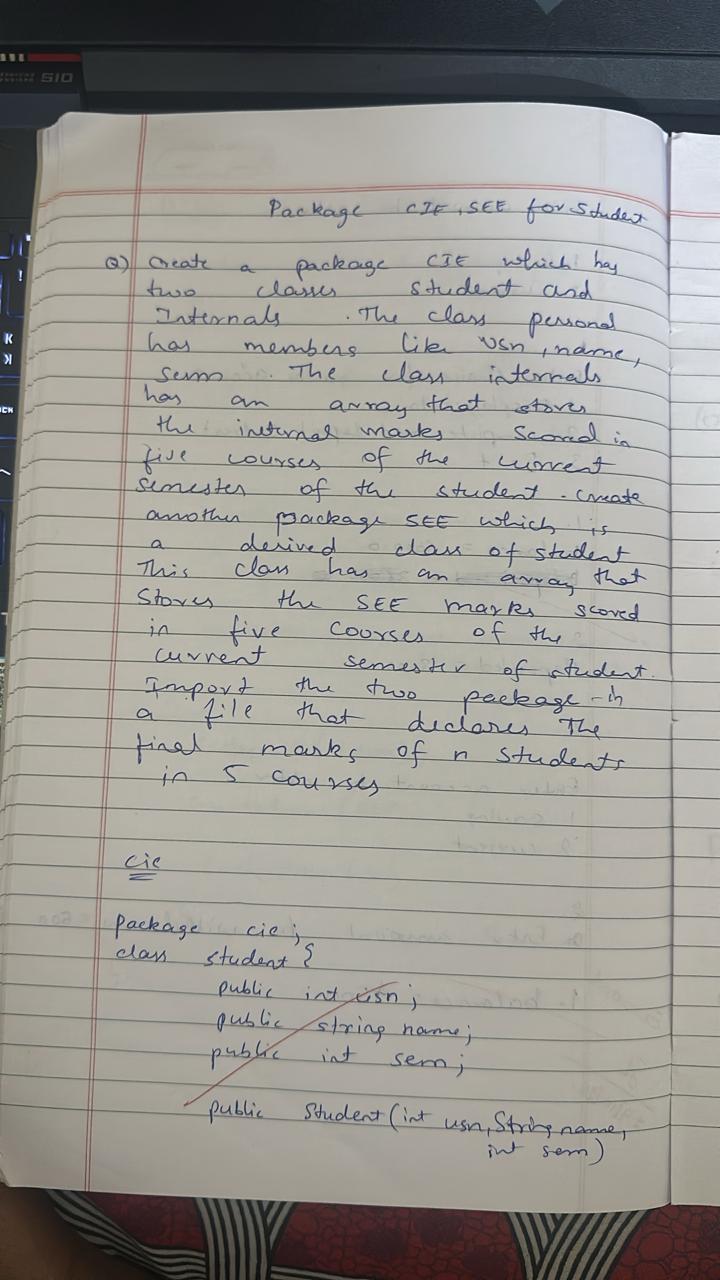 S10
K
Package CIE, SEE for Student
Q) Create a package CIE which has
two classes student and
Internals . The class personal
has members like usn, name,
sem . The class internals
has an array that stores
the internal marks scored in
five courses of the current
semester of the student. Create
another package SEE which is
a derived class of student
This class has an array that
stores the SEE marks scored
in five courses of the
current semester of student.
Import the two package in
a file that declares the
final marks of n students
in 5 courses
cie
package cie;
class student {
public int usn;
public string name;
public int sem;
public Student (int usn, String name,
int sem)